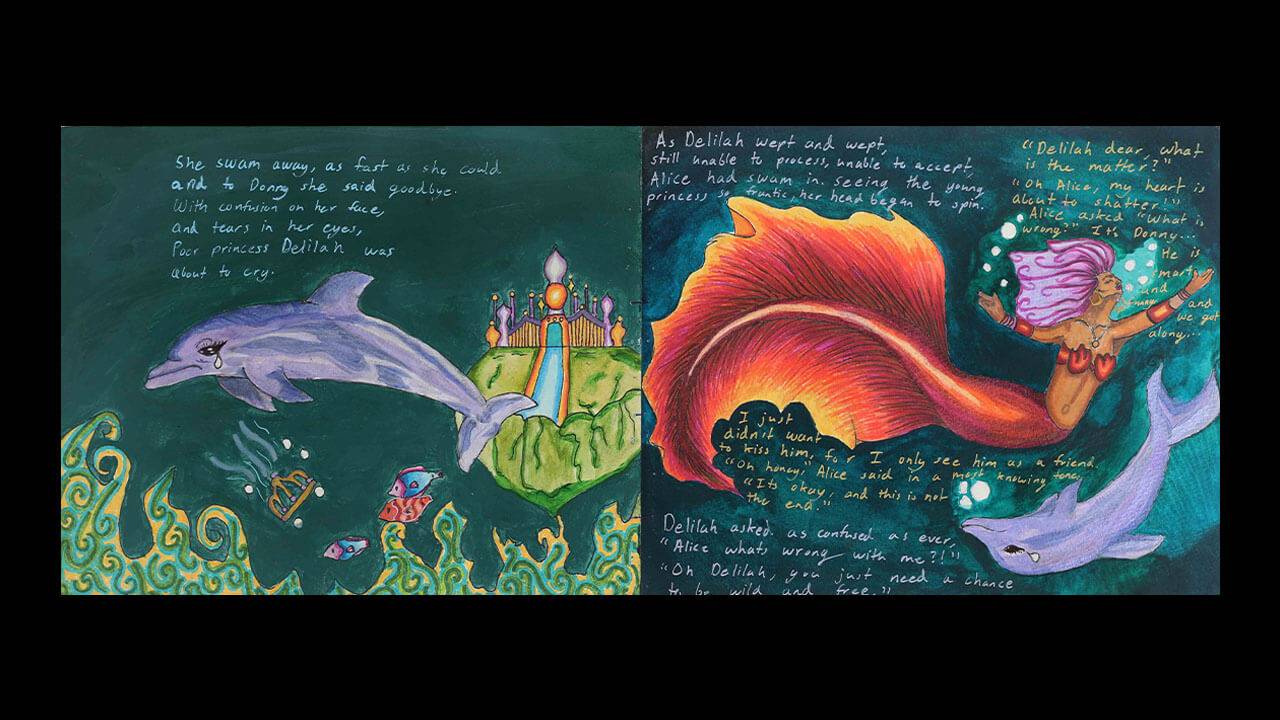 She swam away, as fast as she could
and to Donny she said goodbye.
With confusion on her face,
and tears in her eyes,
Poor princess Delilah was
about to cry.
As Delilah wept and wept,
still unable to process, unable to accept,
Alice had swam in. seeing the young
princess so frantic, her head began to spin.
"Delilah dear, what
is the matter?"
"Oh Alice, my heart is
about to shatter!"
Alice asked "What is
wrong?" It's Donny...
He is
smart,
and
and
we got
along...
I just
didn't want
to kiss him, for I only see him as a friend.
"Oh honey," Alice said in a most knowing tone,
"Its okay, and this is not
the end."
Delilah asked. as confused as ever,
"Alice whats wrong with me?!"
"Oh Delilah, you just need a chance
to be wild and free."